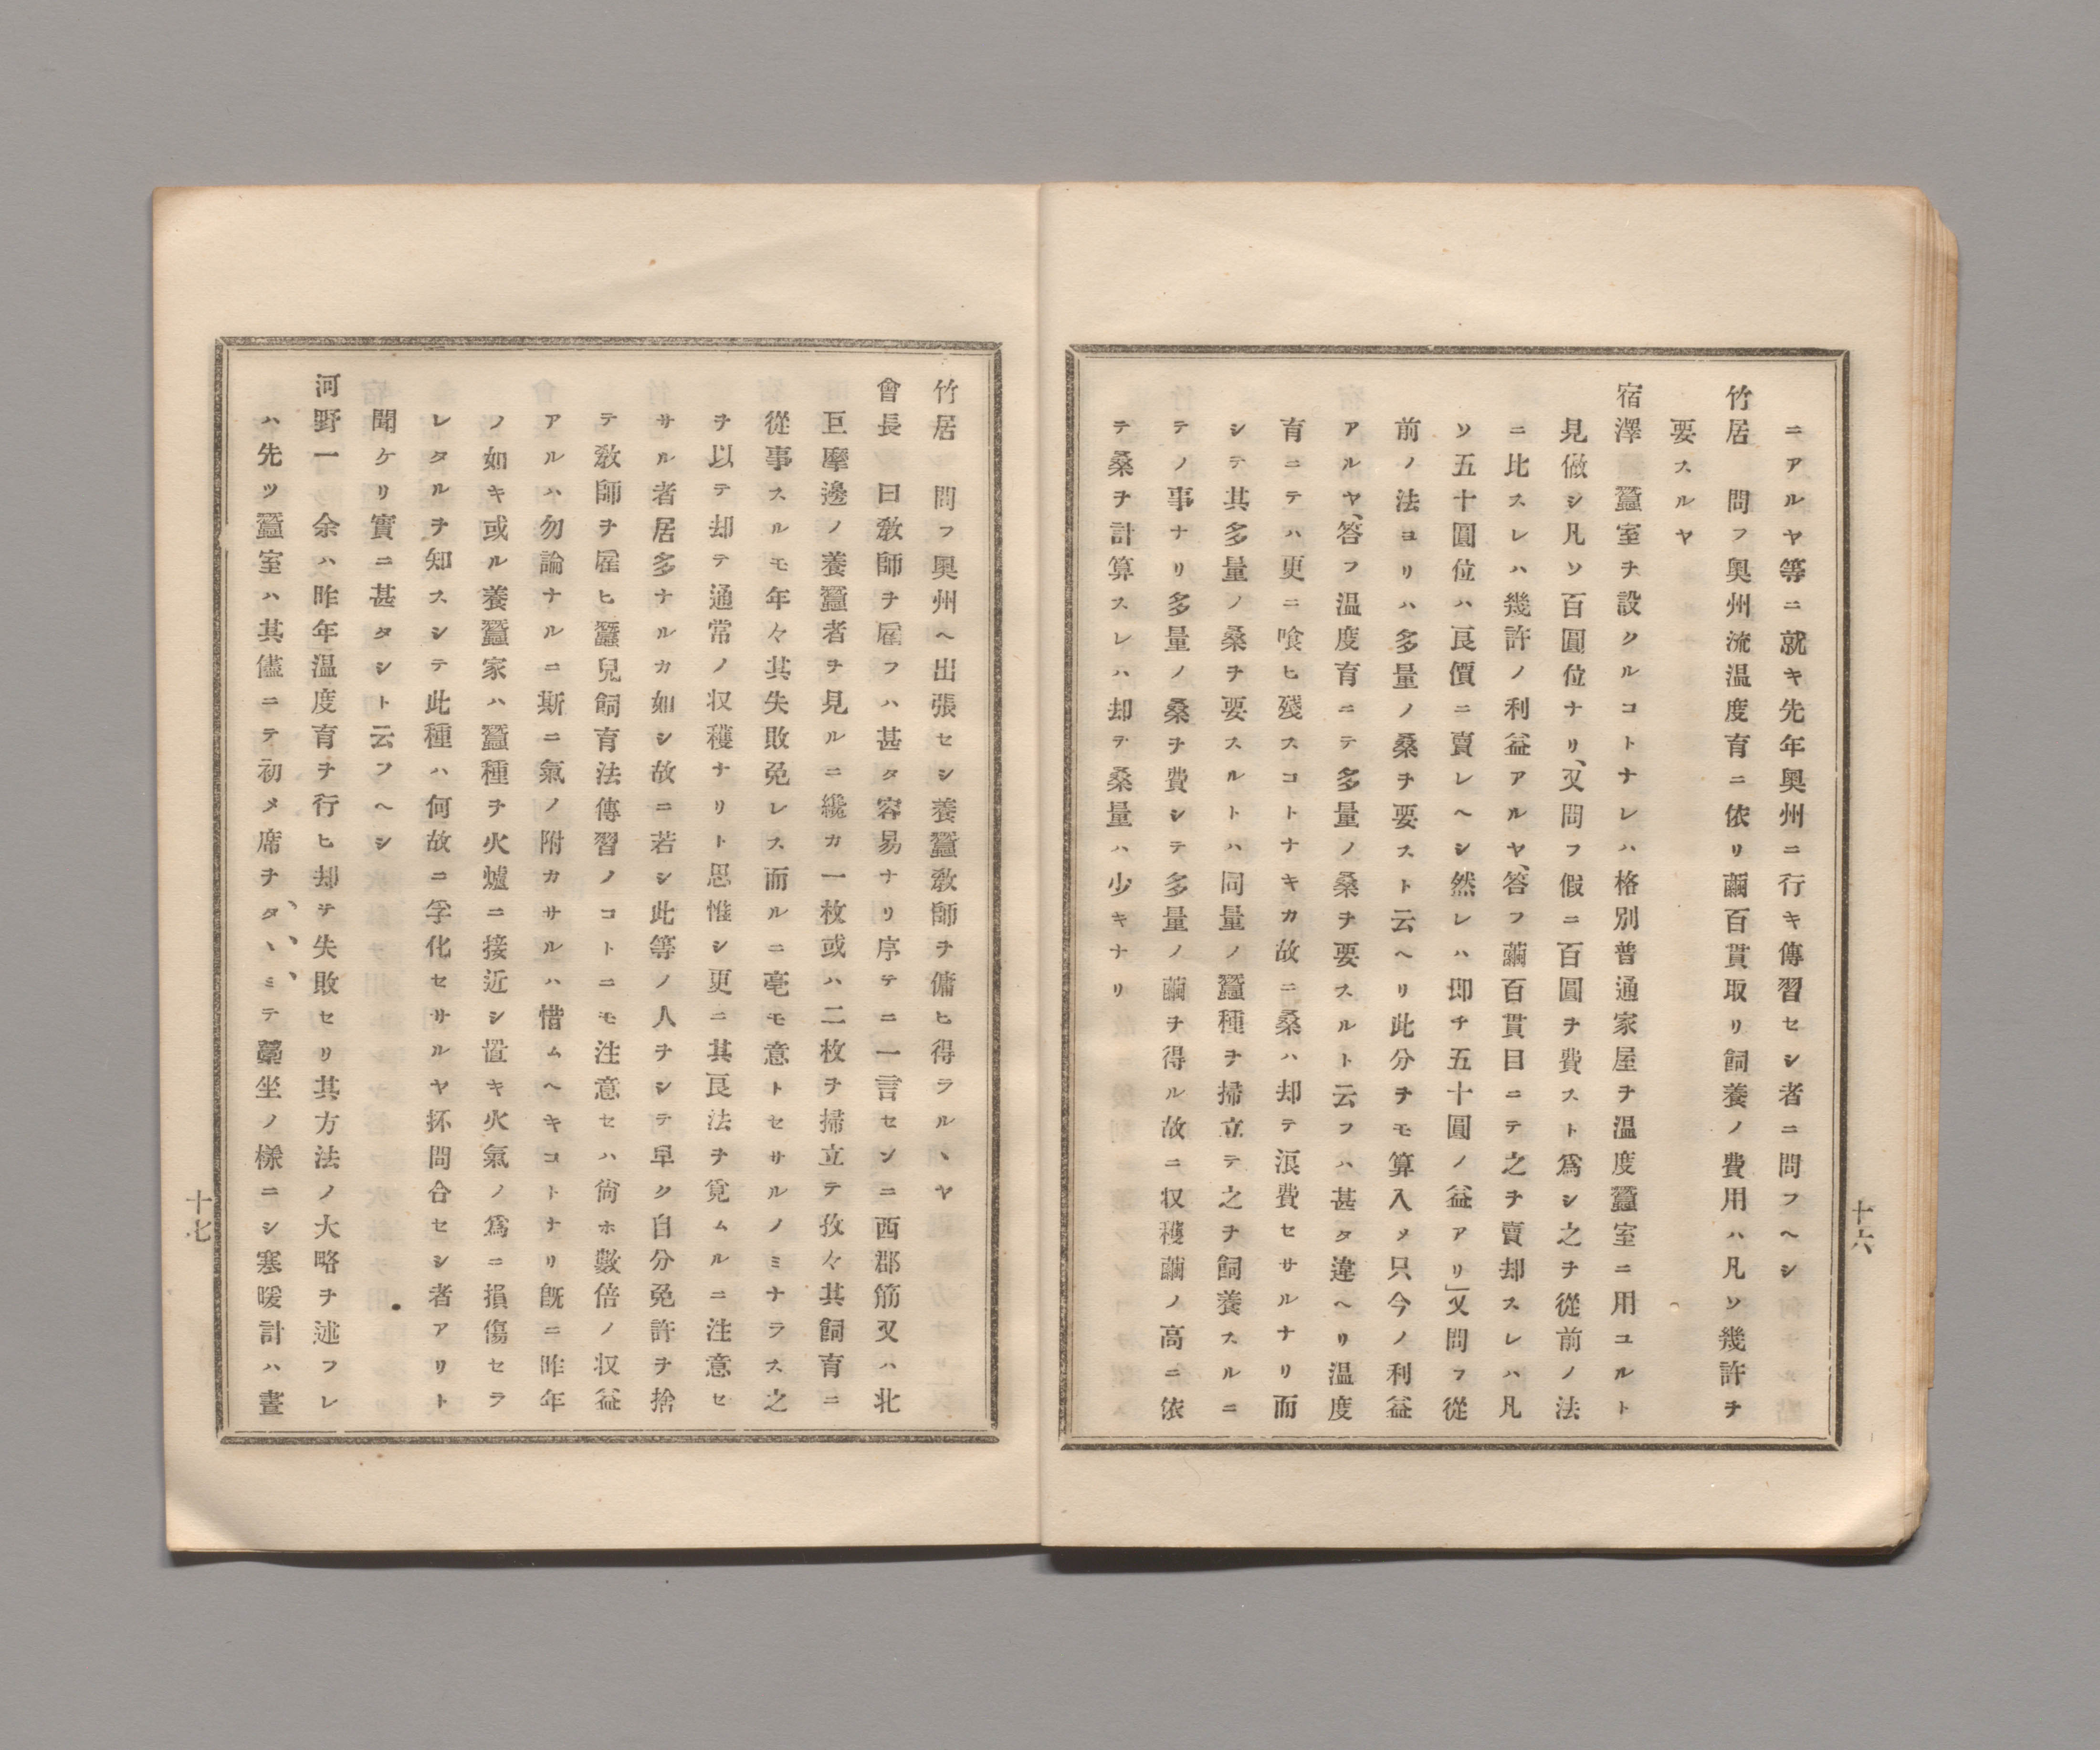 ニアルヤ等ニ就キ先年奥州ニ行キ傳習セシ者ニ問フヘシ
竹居　問フ奥州流温度育ニ依リ繭百貫取リ飼養ノ費用ハ凡ソ幾許ヲ
要スルヤ
宿澤　蠶室ヲ設クルコトナレハ格別普通家屋ヲ温度蠶室ニ用ユルト
見倣シ凡ソ百圓位ナリ、又問フ假ニ百圓ヲ費スト爲シ之ヲ從前ノ法
ニ比スレハ幾許ノ利益アルヤ、答フ繭百貫目ニテ之ヲ賣却スレハ凡
ソ五十圓位ハ良價ニ賣レヘシ然レハ即チ五十圓ノ益アリ」又問フ從
前ノ法ヨリハ多量ノ桑ヲ要スト云ヘリ此分ヲモ算入メ只今ノ利益
アルヤ、答フ温度育ニテ多量ノ桑ヲ要スルト云フハ甚タ違ヘリ温度
育ニテハ更ニ喰ヒ殘スコトナキカ故ニ桑ハ却テ浪費セサルナリ而
シテ其多量ノ桑ヲ要スルトハ同量ノ蠶種ヲ掃立テ之ヲ飼養スルニ
テノ事ナリ多量ノ桑ヲ費シテ多量ノ繭ヲ得ル故ニ収穫繭ノ高ニ依
テ桑ヲ計算スレハ却テ桑量ハ少キナリ
十六
竹居　問フ奥州ヘ出張セシ養蠶敎師ヲ傭ヒ得ラルヽヤ
會長　曰敎師ヲ雇フハ甚タ容易ナリ序テニ一言センニ西郡筋又ハ北
巨摩邊ノ養蠶者ヲ見ルニ纔カ一枚或ハ二枚ヲ掃立テ孜々其飼育ニ
從事スルモ年々其失敗免レス而ルニ毫モ意トセサルノミナラス之
ヲ以テ却テ通常ノ収穫ナリト思惟シ更ニ其良法ヲ覓ムルニ注意セ
サル者居多ナルカ如シ故ニ若シ此等ノ人ヲシテ早ク自分免許ヲ捨
テ敎師ヲ雇ヒ蠶兒飼育法傳習ノコトニモ注意セハ尙ホ數倍ノ収益
アルハ勿論ナルニ斯ニ氣ノ附カサルハ惜ムヘキコトナリ既ニ昨年
ノ如キ或ル養蠶家ハ蠶種ヲ火爐ニ接近シ置キ火氣ノ爲ニ損傷セラ
レタルヲ知スシテ此種ハ何故ニ孚化セサルヤ抔問合セシ者アリト
聞ケリ實ニ甚タシト云フヘシ
河野一　余ハ昨年温度育ヲ行ヒ却テ失敗セリ其方法ノ大略ヲ述フレ
ハ先ツ蠶室ハ其儘ニテ初メ席ヲタヽミテ藁坐ノ樣ニシ寒暖計ハ晝
十七